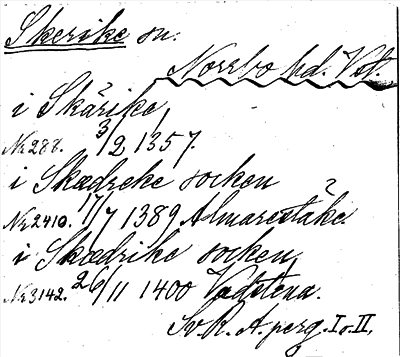 Skerike sn.
Norrbo hd. Vst.
i Skärike,
Nr 288. 3/2 1357.
i Skædreke socken
Nr 2410. 17/7 1389 Almarestäke.
i Skædrike socken,
Nr 3142. 26/11 1400 Vadstena.
Sv. R. A. perg. I o. II.